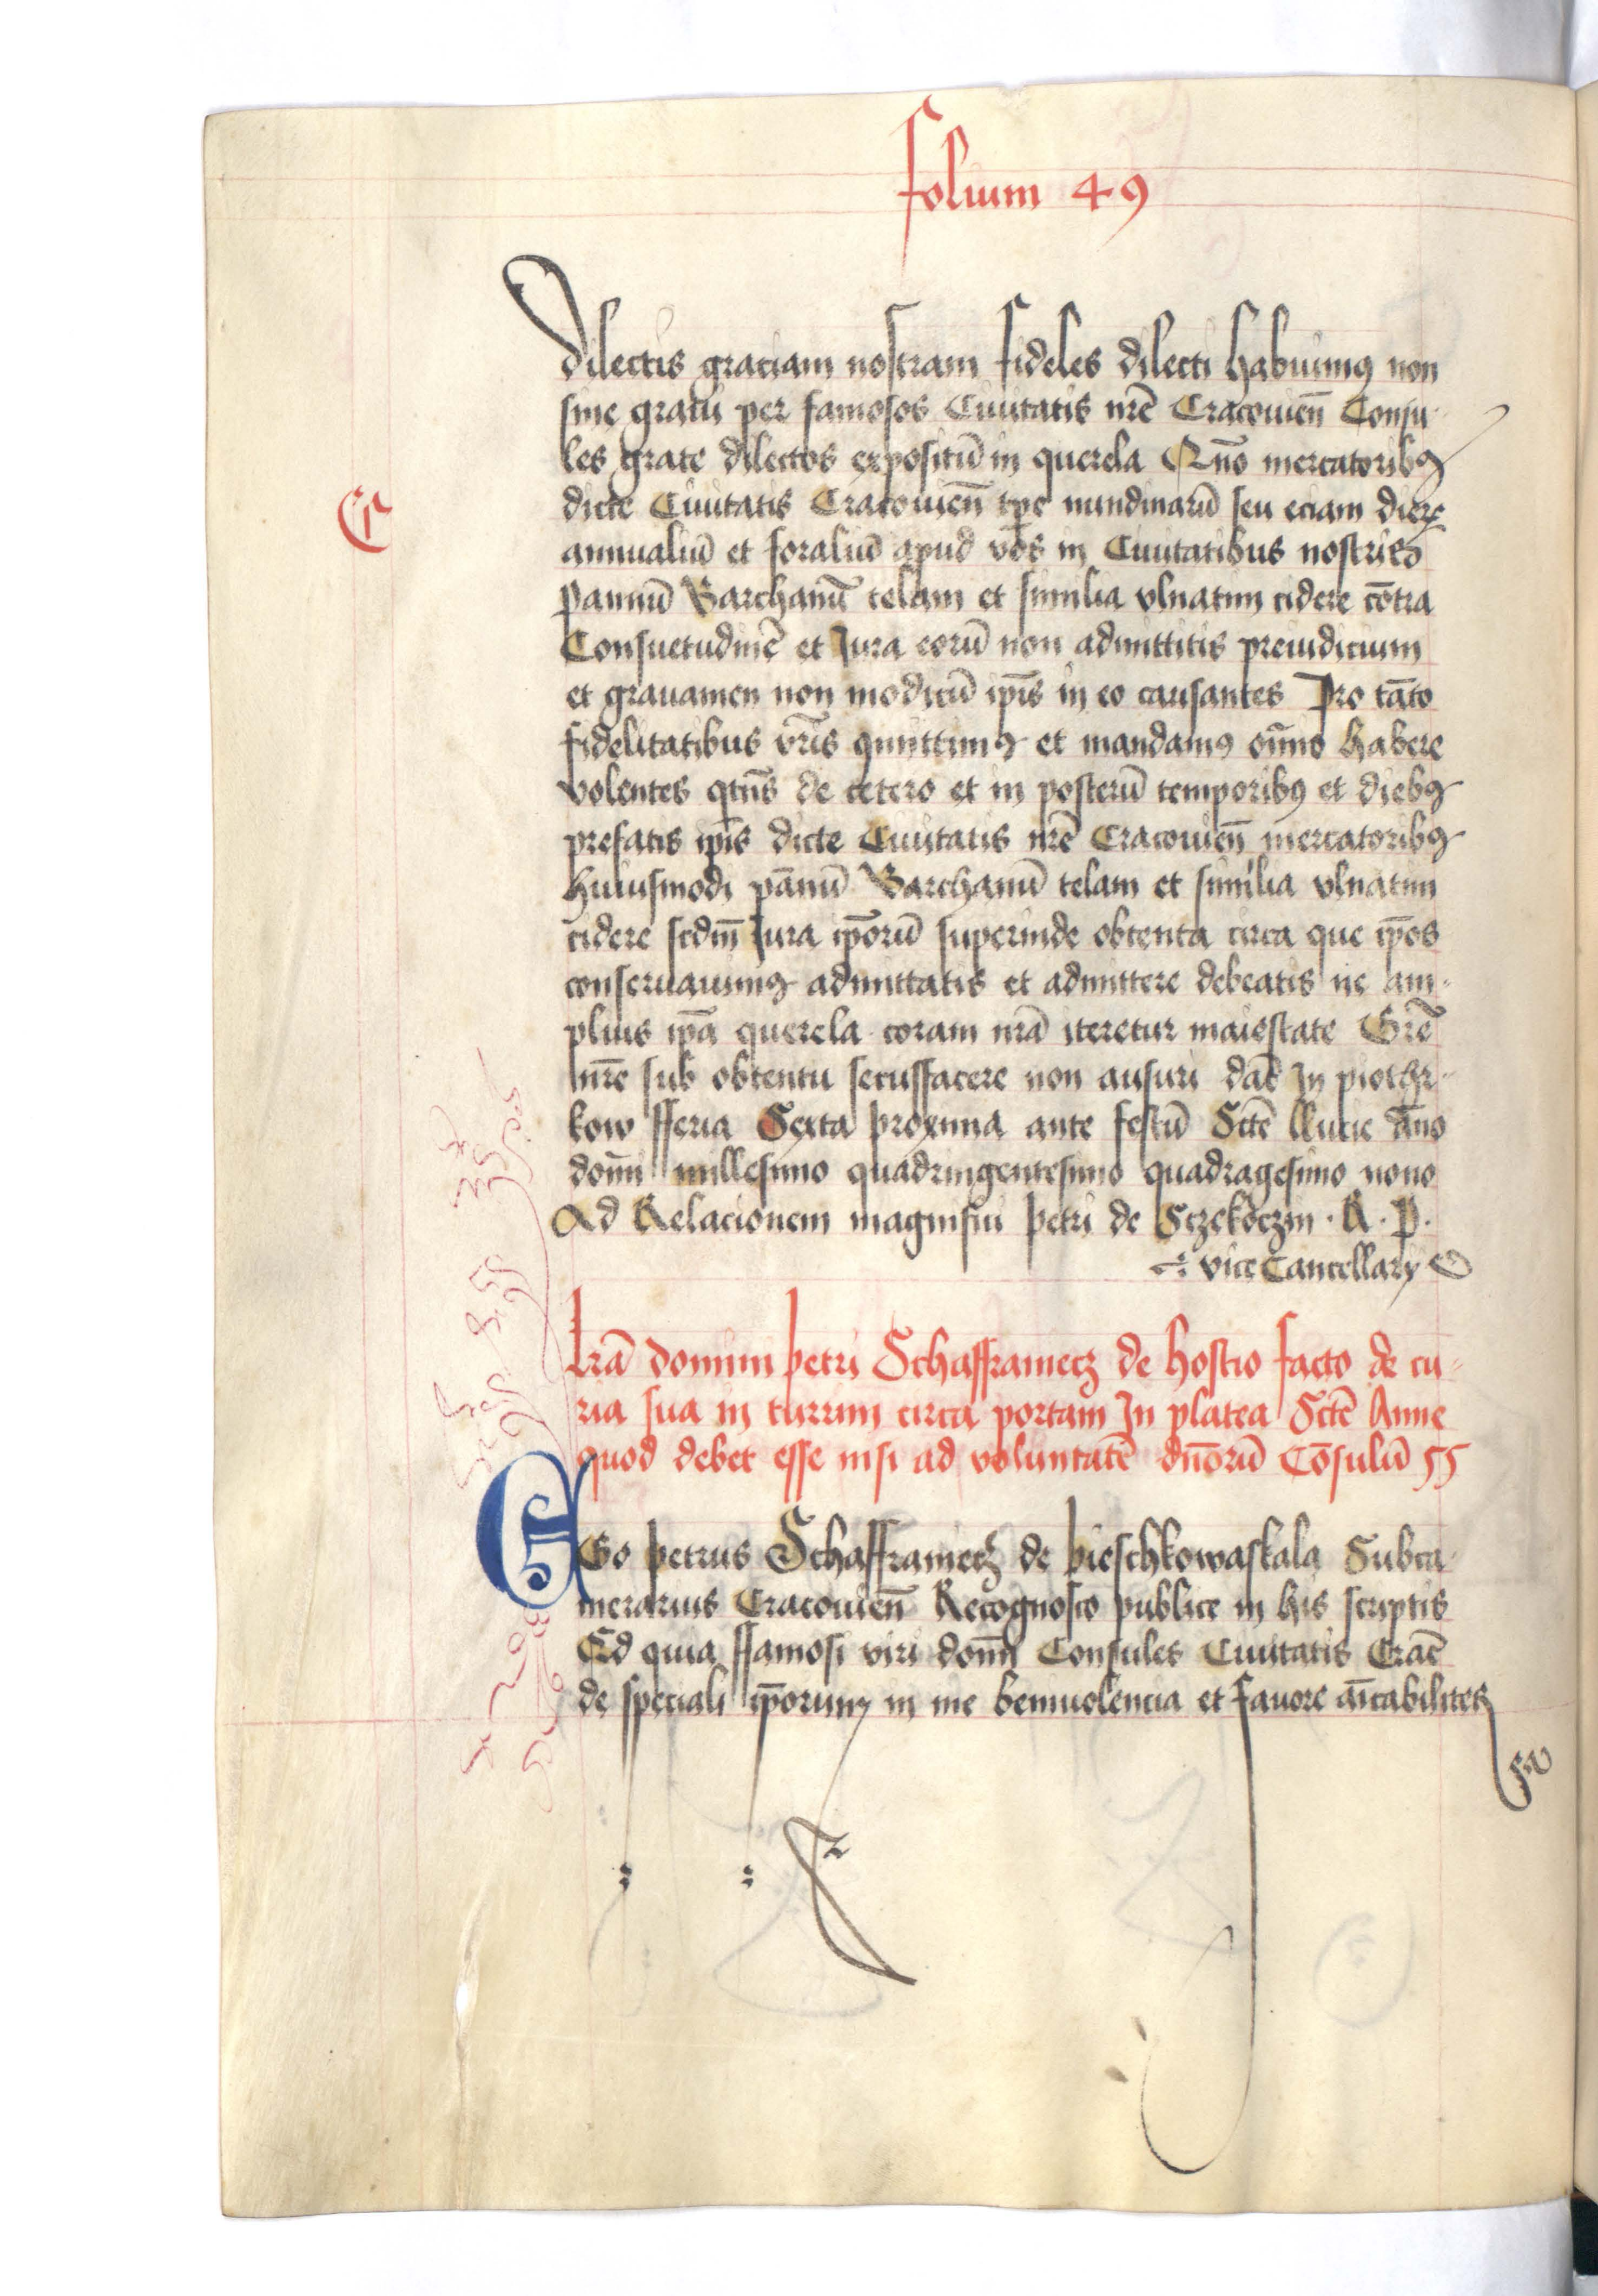 folium 49
dilectis graciam nostram fideles dilecti habuimꝰ non
sine grauī per famosos Ciuitatis nr̄e Cracouien̄ Consu-
les grate dilectos expositū in querela Quō mercatoribꝰ
dicte Ciuitatis Cracouien̄ tp̄e nundinarū seu eciam dierꝝ
annualiū et foraliū apud vos in Ciuitatibus nostris
pannū Barchanū telam et similia vlnatim cidere cōtra
Consuetudinē et Jura eorū non admittitis preiudicium
et grauamen non modicū ip̄is in eo causantes Pro tāto
fidelitatibus vr̄is quittimꝰ et mandamꝰ om̄no habere
volentes qtn̄s de cetero et in posterū temporibꝰ et diebꝰ
prefatis ip̄is dicte Ciuitatis nr̄e Cracouien̄ mercatoribꝰ
huiusmodi pānū Barchanū telam et similia vlnatim
cidere scdm̄ Jura ip̄orū superinde obtenta circa que ip̄os
conseruauimꝰ admittatis et admittere debeatis ne am-
plius ip̄a querela coram nr̄a iteretur maiestate Grē
nr̄e sub obtentu secusfacere non ausuri dat̄ In piothr-
kow fferia Sexta proxima ante festū Sctē llucie āno
domī millesimo quadringentesimo quadragesimo nono
Ad Relacionem magnifici petri de Sczekoczin · R · P ·
vice Cancellarÿ
lrā domini petri Schafframecz de hostio facto de cu-
ria sua in turrim circa portam In platea Sctē Anne
quod debet esse nisi ad voluntatē dn̄orū Cōsulū
EGo petrus Schafframecz de pieschkowaskala Subca-
merarius Cracouien̄ Recognosco publice in his scriptis
Ed quia ffamosi viri domī Consules Ciuitatis Crac̄
de speciali ip̄orum in me beniuolencia et fauore amīcabiliter